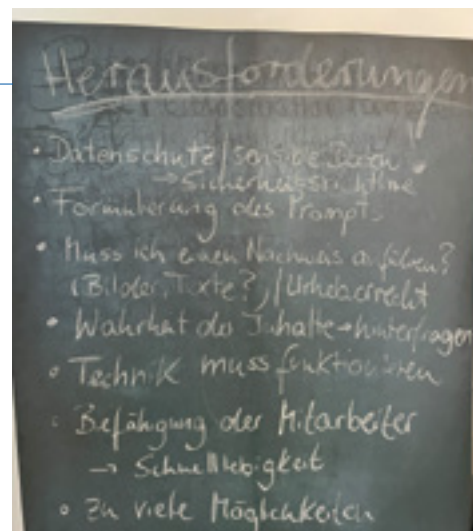 Herausforderungen
• Datenschutz/sensible Daten
→ Sicherheitsrichtlinie
• Formulierung des Prompts
• Muss ich einen Nachweis anführen?
(Bilder, Texte?)/Urheberrecht
• Wahrheit der Inhalte → hinterfragen
• Technik muss funktionieren
• Befähigung der Mitarbeiter
→ Schnelllebigkeit
• Zu viele Möglichkeiten